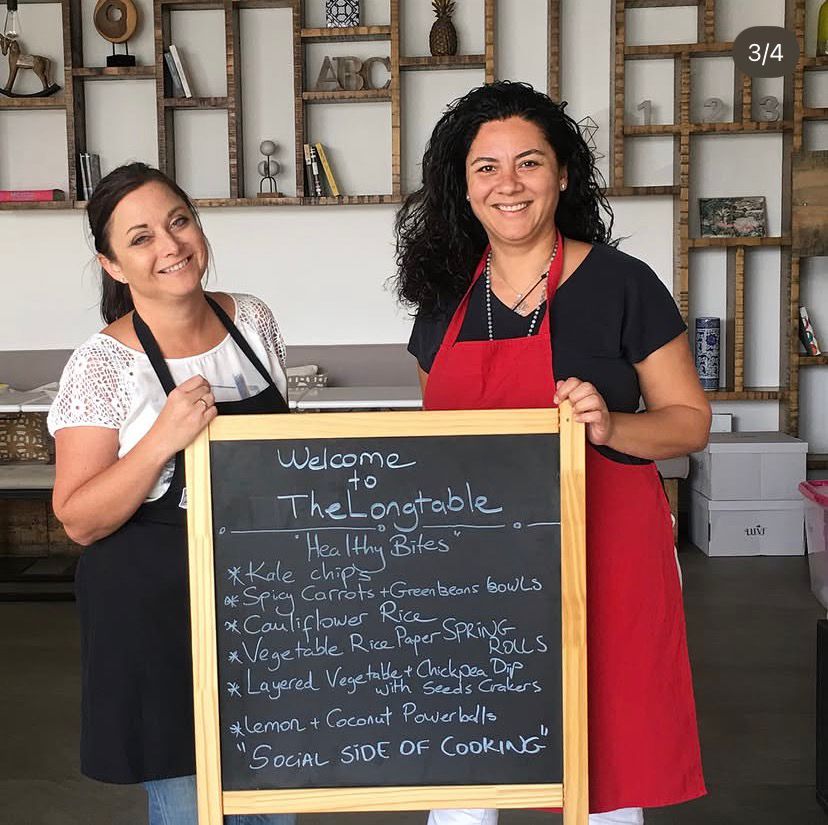 3/4
ABC
1 2 3
Welcome
to
TheLongtable
"Healthy Bites"
* Kale chips
* Spicy Carrots + Greenbeans BOWLS
* Cauliflower Rice
* Vegetable Rice Paper SPRING
ROLLS
* Layered Vegetable + Chickpea Dip
with Seeds Crakers
* Lemon + Coconut Powerballs
"SOCIAL SIDE OF COOKING"